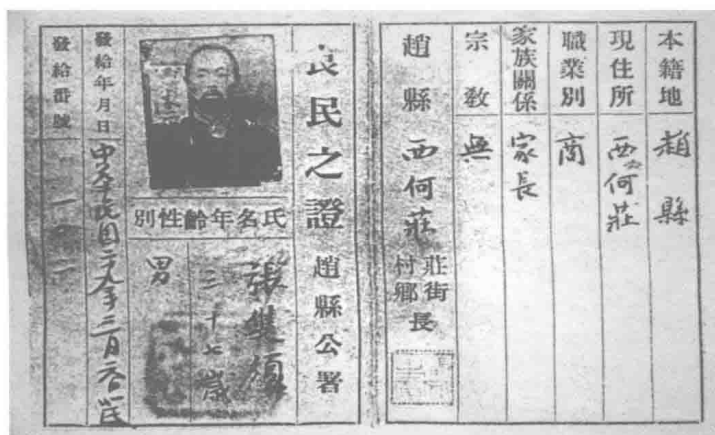 本籍地 趙縣
現住所 西河莊
職業別 商
家族關係 家長
宗教 無
趙縣 西何莊 莊街村鄉長
良民之證 趙縣公署
氏名年齡性別
張
三十七歲
男
發給年月日 中華民國二十九年三月
發給番號 一